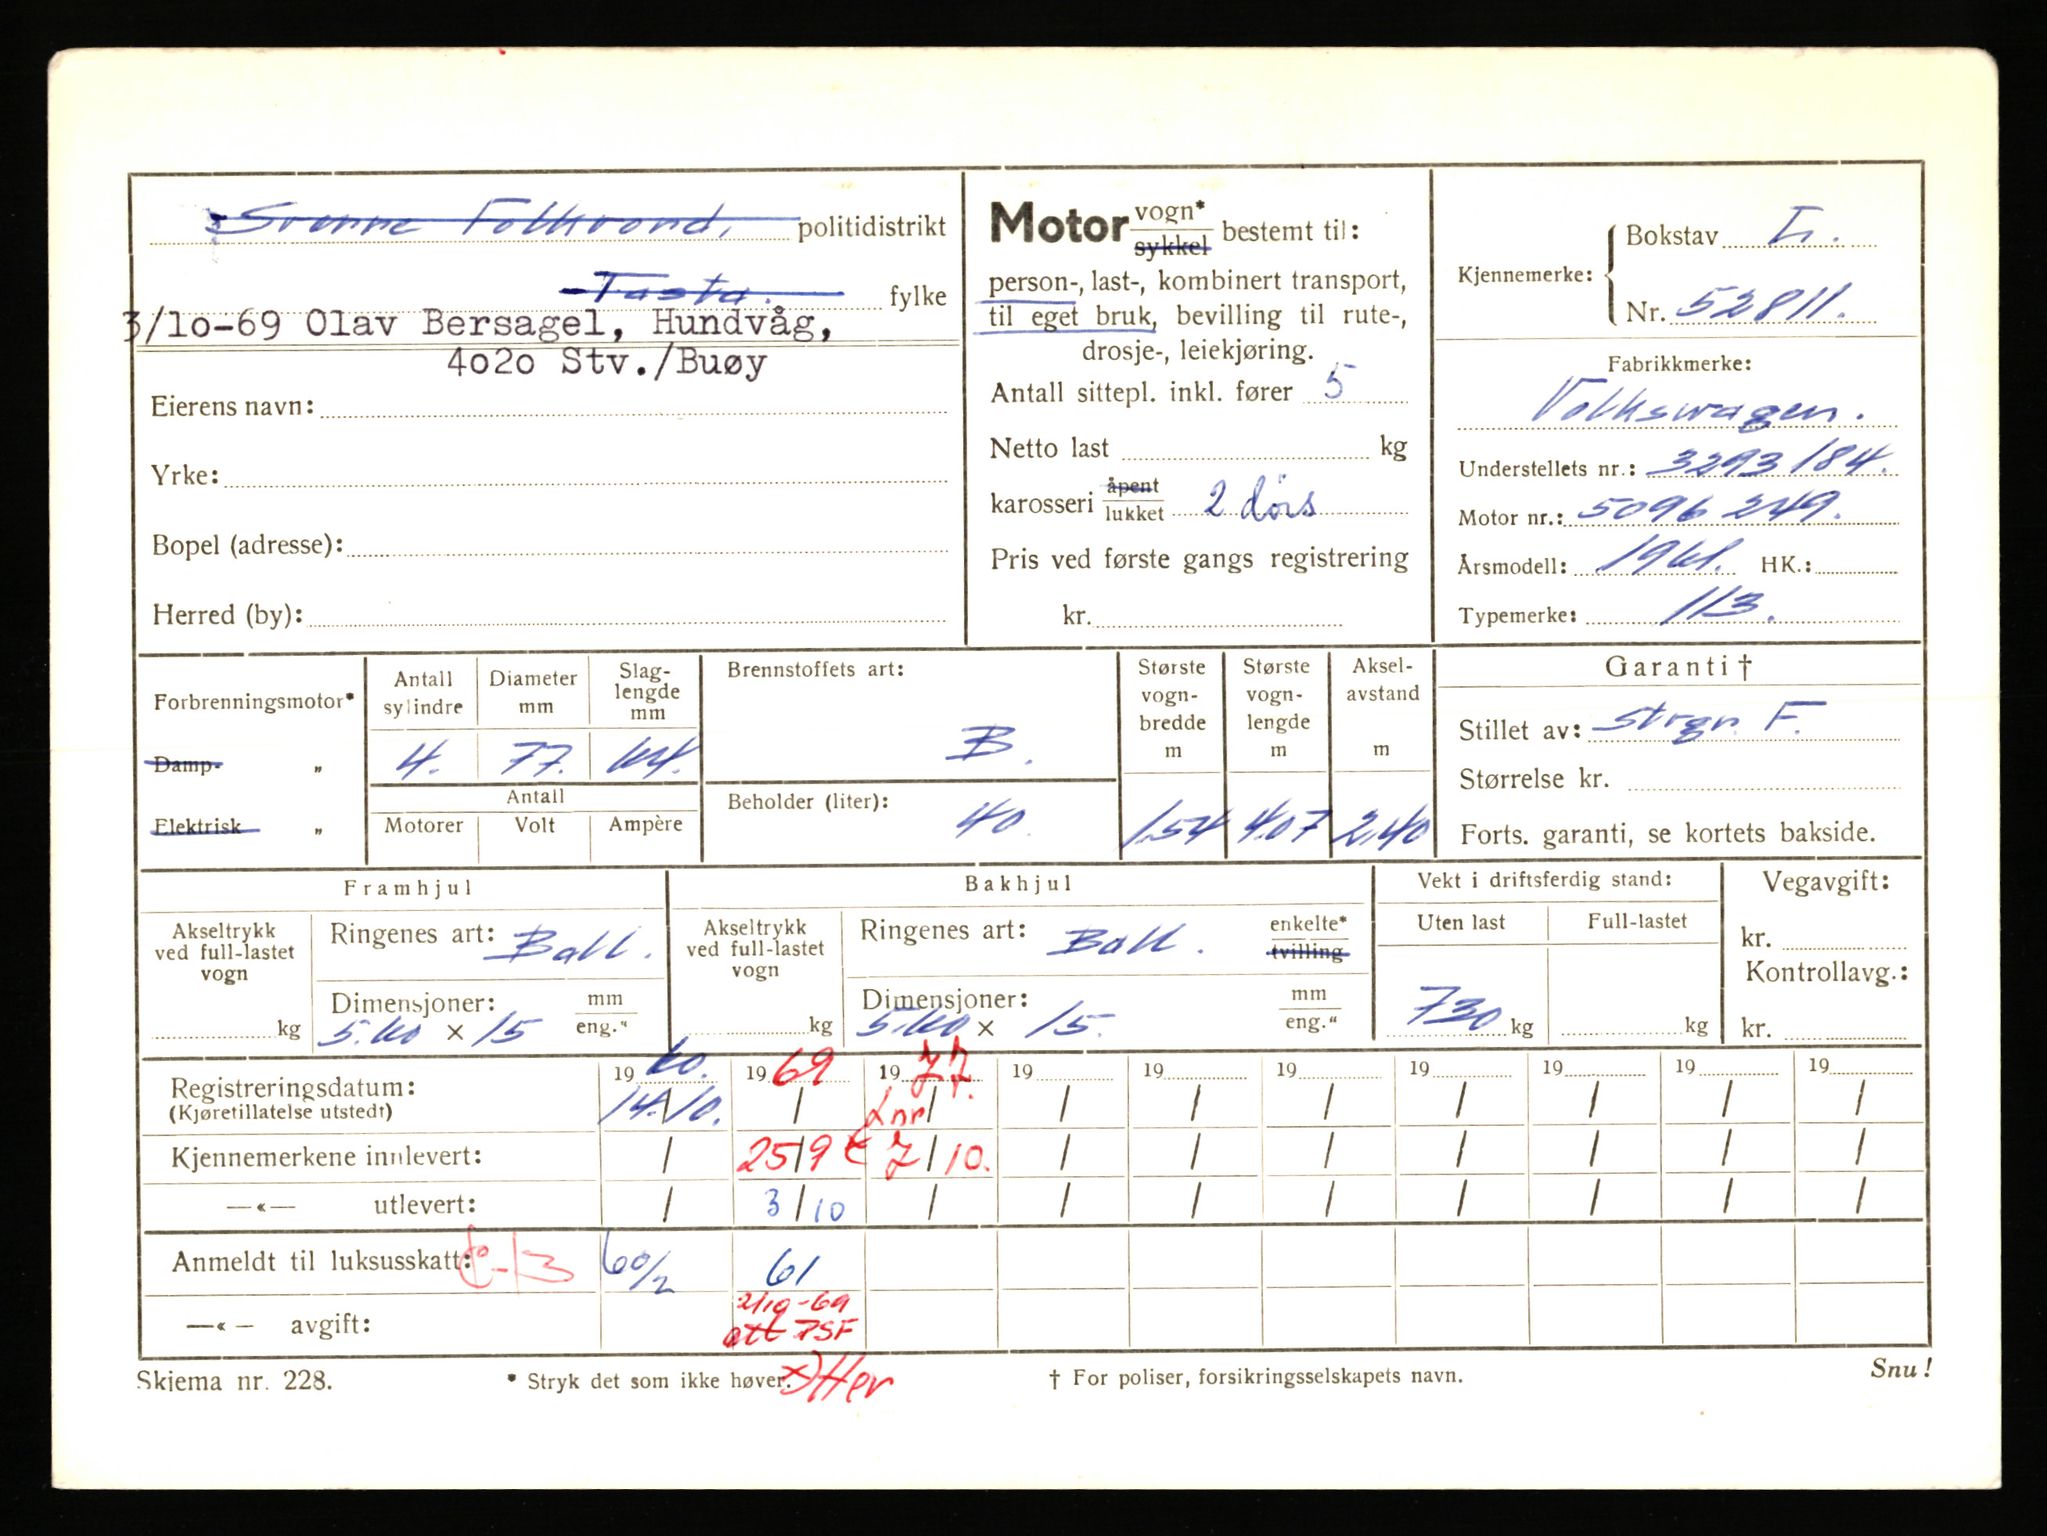 Svenne Folkvord, politidistrikt
Tasta. fylke
3/10-69 Olav Bersagel, Hundvåg,
4020 Stv./Buøy
Eierens navn:
Yrke:
Bopel (adresse):
Herred (by):
Motor vogn* / sykkel bestemt til:
person-, last-, kombinert transport,
til eget bruk, bevilling til rute-,
drosje-, leiekjøring.
Antall sittepl. inkl. fører 5
Netto last kg
karosseri åpent / lukket 2 dørs
Pris ved første gangs registrering
kr.
Kjennemerke: Bokstav L.
Nr. 52811.
Fabrikkmerke:
Volkswagen.
Understellets nr.: 3293184.
Motor nr.: 5096249.
Årsmodell: 1961. HK.:
Typemerke: 113.
Forbrenningsmotor*
Damp- „
Elektrisk „
Antall sylindre 4.
Diameter mm 77.
Slag-lengde mm 64.
Antall
Motorer Volt Ampère
Brennstoffets art: B.
Beholder (liter): 40
Største vogn-bredde m 1,54
Største vogn-lengde m 4,07
Aksel-avstand m 2,40
Garanti †
Stillet av: Strgr. F.
Størrelse kr.
Forts. garanti, se kortets bakside.
Framhjul
Akseltrykk ved full-lastet vogn kg
Ringenes art: Ball.
Dimensjoner: mm / eng."
5.60 × 15
Bakhjul
Akseltrykk ved full-lastet vogn kg
Ringenes art: Ball. enkelte* / tvilling
Dimensjoner: mm / eng."
5.60 × 15.
Vekt i driftsferdig stand:
Uten last Full-lastet
730 kg kg
Vegavgift:
kr.
Kontrollavg.:
kr.
Registreringsdatum: 1960. 1969 1977. 19 19 19 19 19 19 19
(Kjøretillatelse utstedt) 14./10. / Lnr / / / / / / / /
Kjennemerkene innlevert: / 25/9 7/10. / / / / / / /
—«— utlevert: / 3/10 / / / / / / / /
Anmeldt til luksusskatt: 60/2 61
—«— avgift: 2/10-69
att PSF
Skjema nr. 228.
* Stryk det som ikke høver.
x) Her
† For poliser, forsikringsselskapets navn.
Snu!